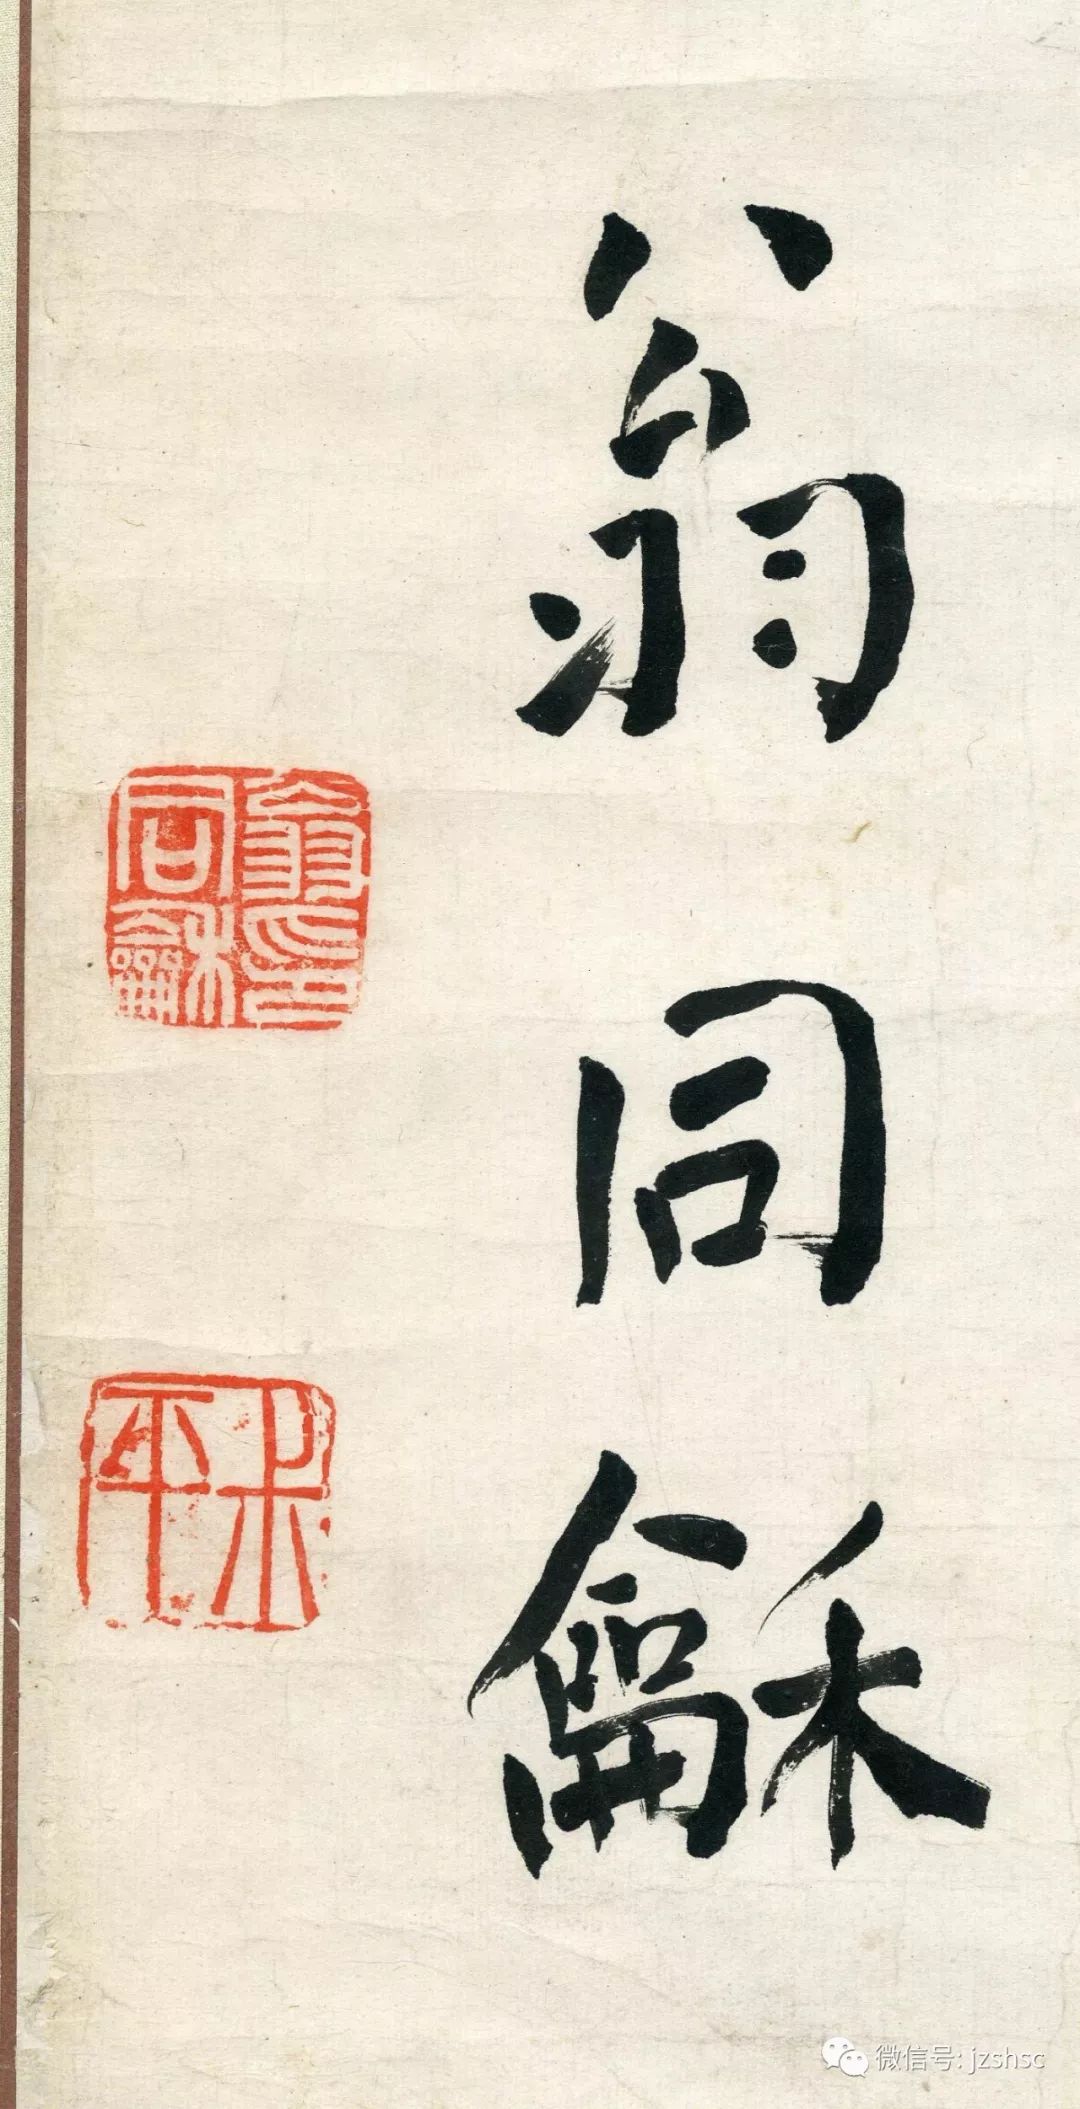 翁同龢
翁同龢印
叔平
微信号: jzshsc